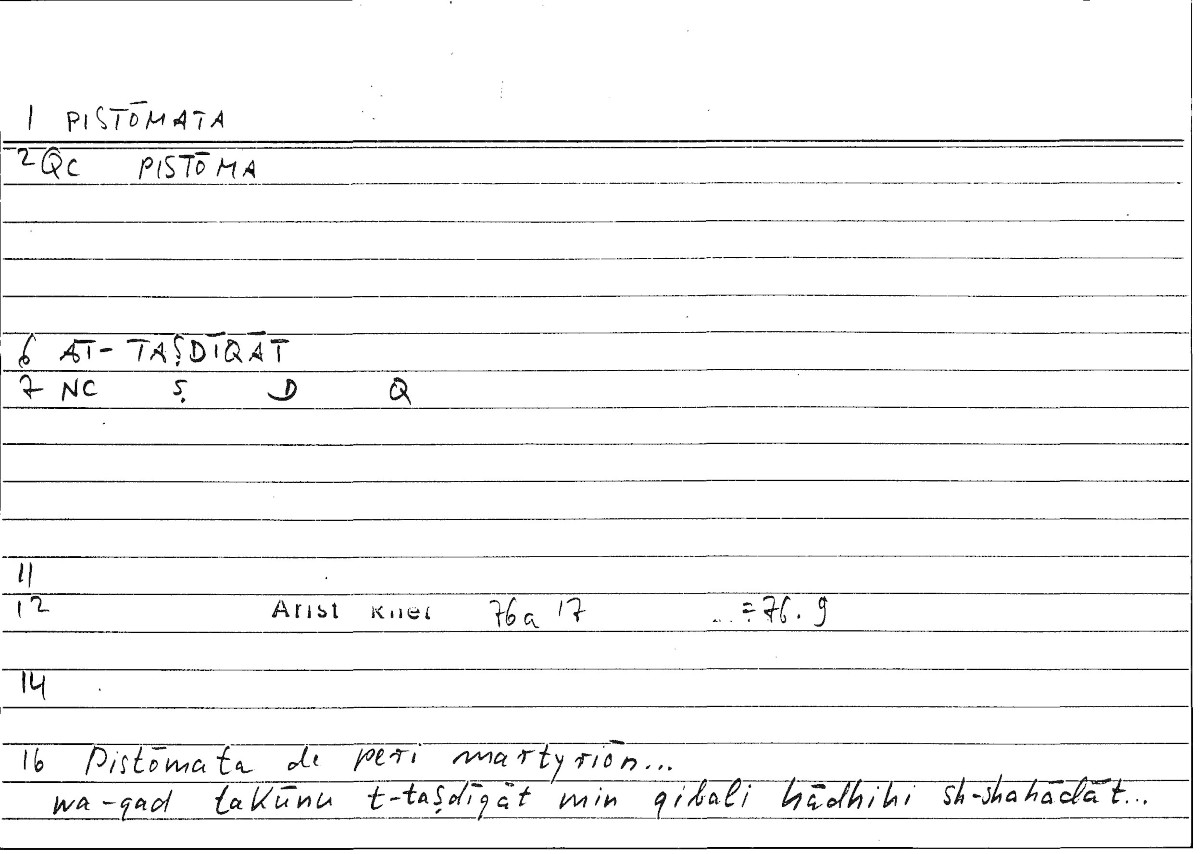 1 PISTŌMATA
2 QC PISTŌMA
6 AT-TAṢDĪQĀT
7 NC Ṣ D Q
11
12 Arist Rhet 76a 17 = 76.9
14
16 Pistōmata de peri martyriōn...
wa-qad takūnu t-taṣdīqāt min qibali hādhihi sh-shahādāt...